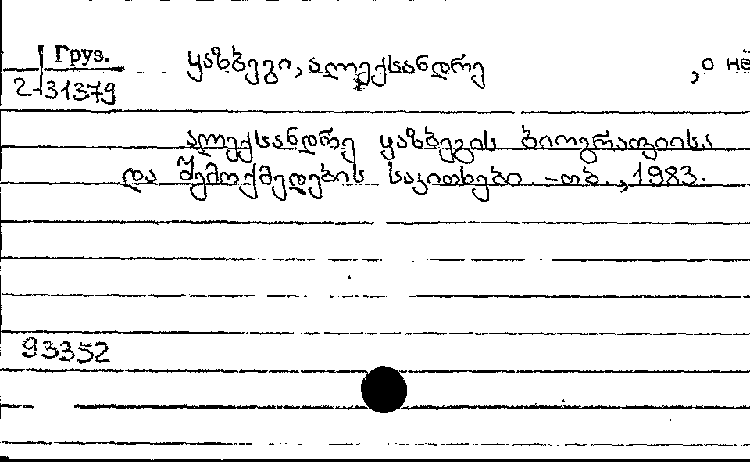 Груз. ყაზბეგი, ალექსანდრე , о нё
2-31379
ალექსანდრე ყაზბეგის ბიოგრაფიისა
და შემოქმედების საკითხები -თბ., 1983.
93352